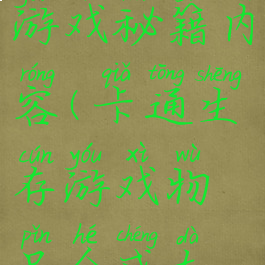 游戏秘籍内
róng qiǎ tōng shēng
容(卡通生
cún yóu xì wù
存游戏物
pǐn hé chéng dà
品合成大